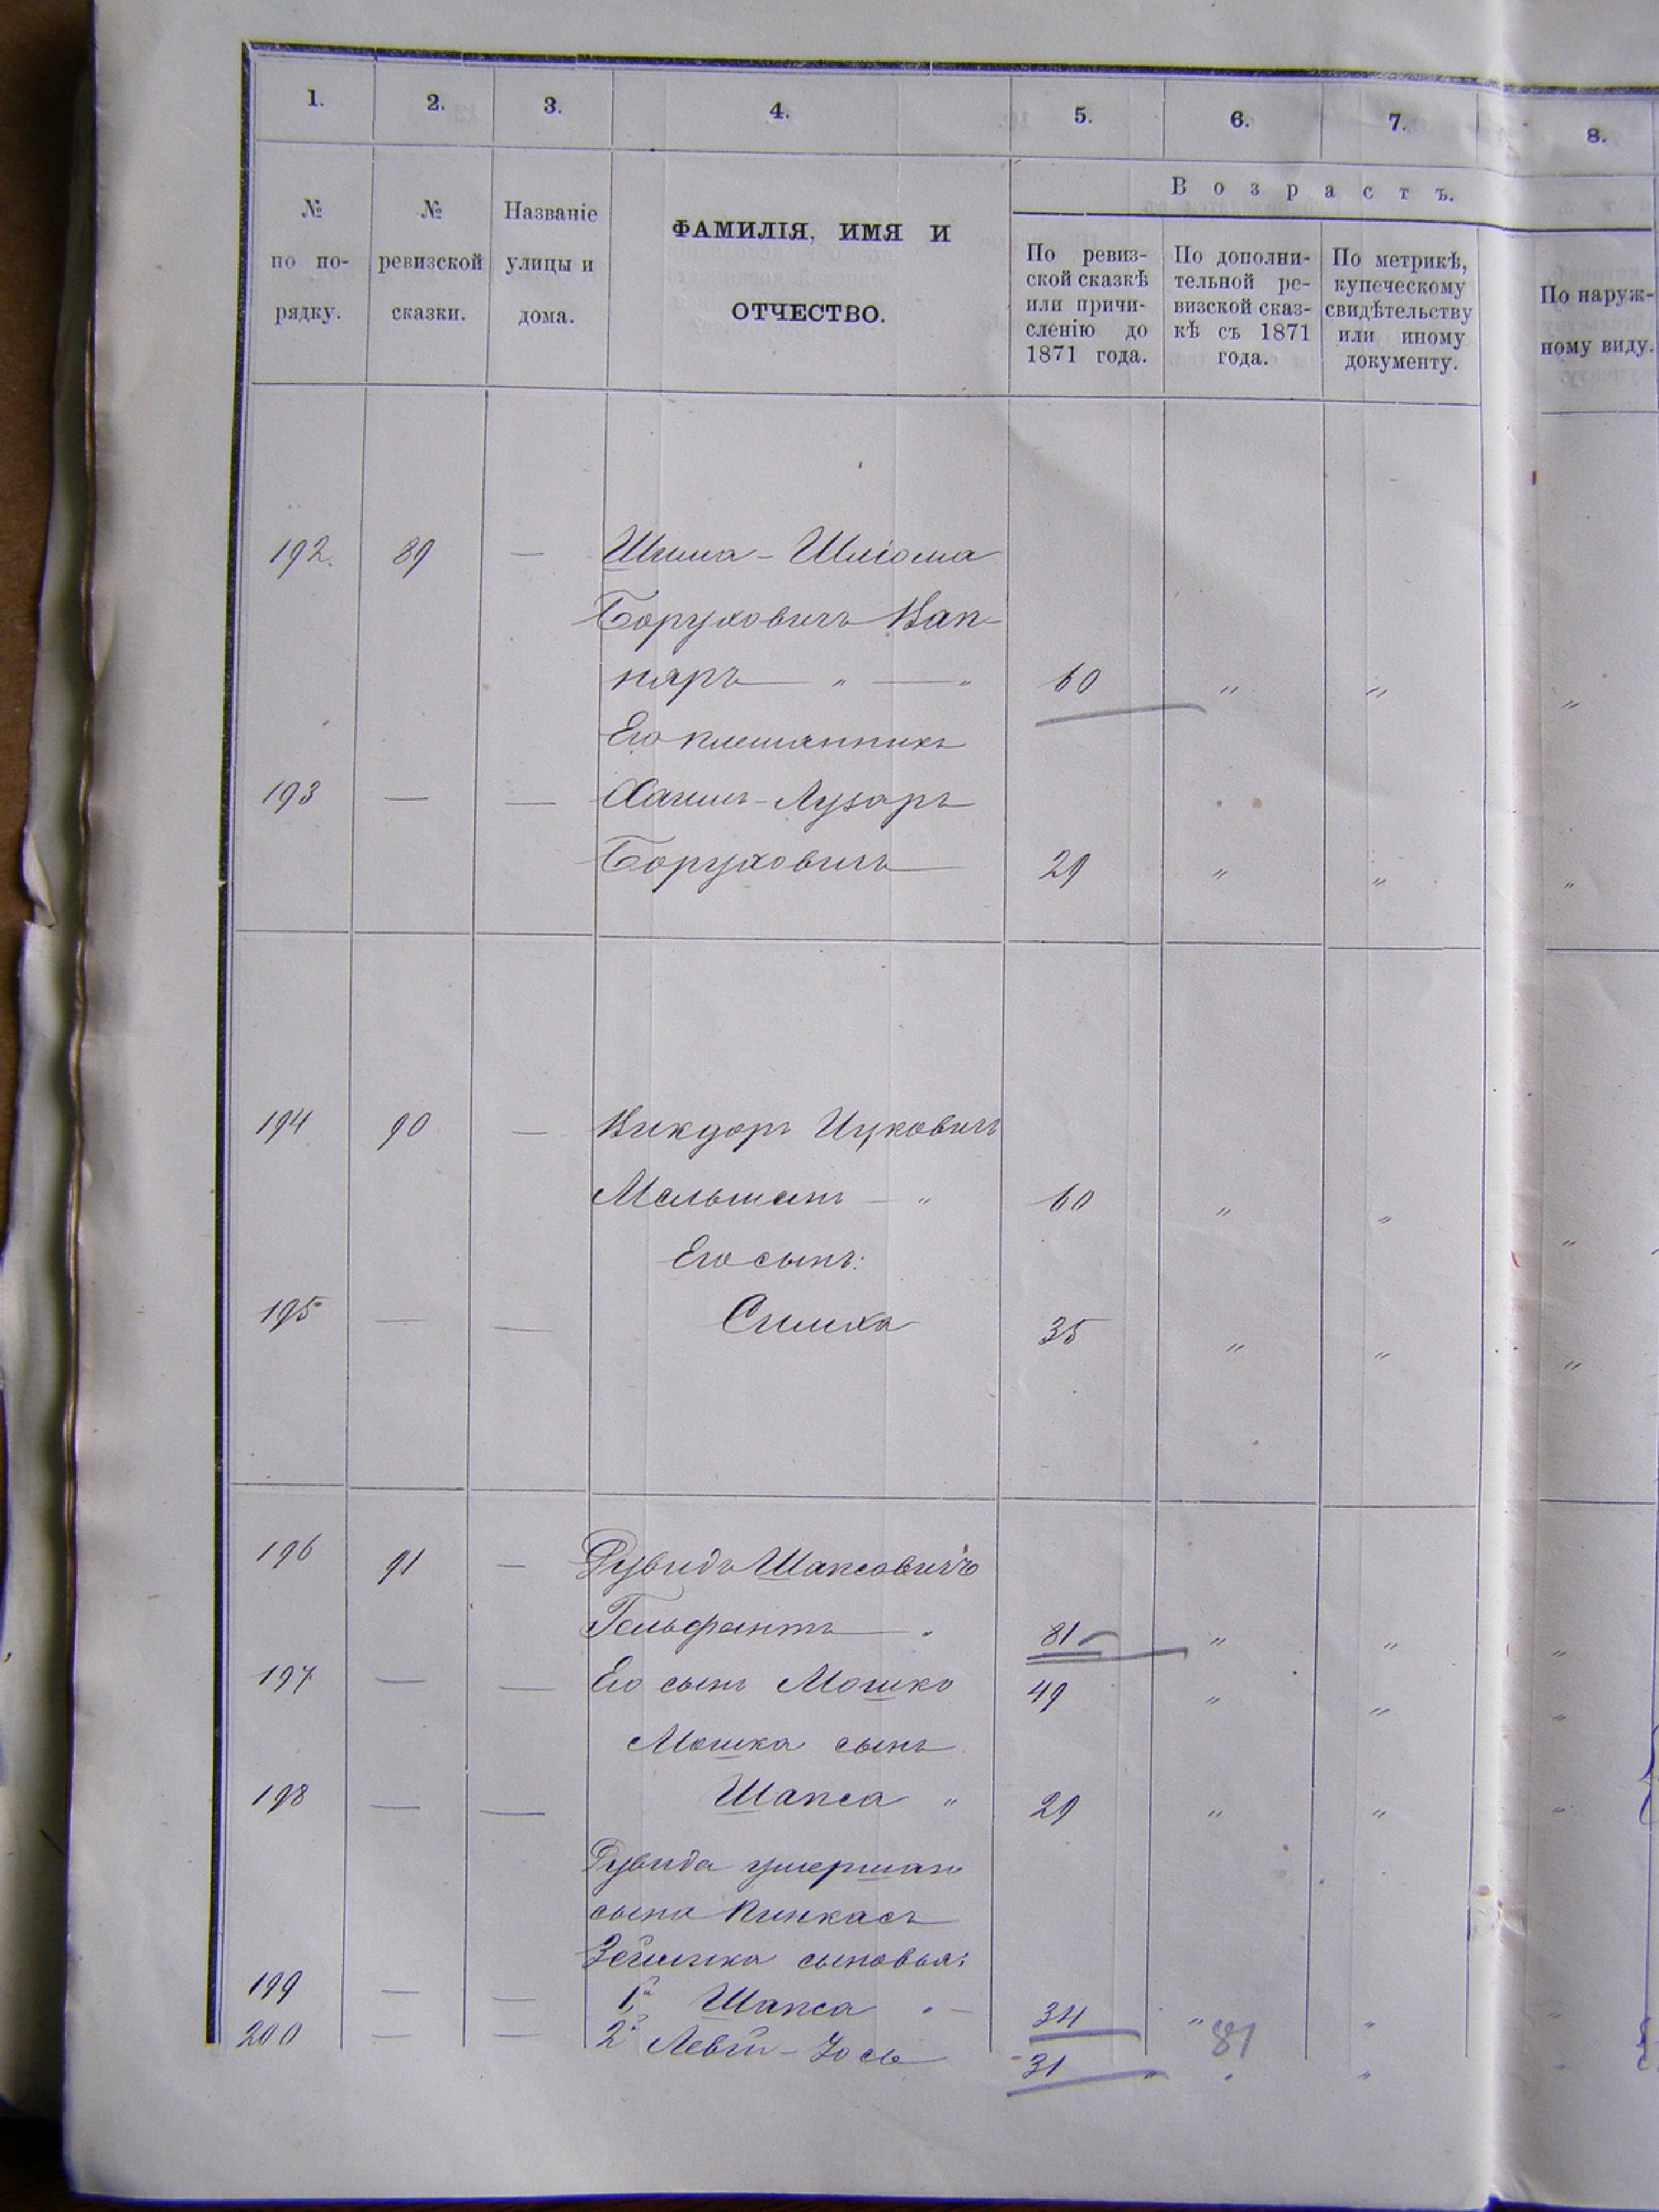 1. 2. 3. 4. 5. 6. 7. 8.
№ по по-рядку.
№ ревизской сказки.
Названіе улицы и дома.
ФАМИЛІЯ, ИМЯ И ОТЧЕСТВО.
Возрастъ.
По ревиз-
ской сказкѣ
или причи-
сленію до
1871 года.
По дополни-
тельной ре-
визской сказ-
кѣ съ 1871
года.
По метрикѣ,
купеческому
свидѣтельству
или иному
документу.
По наруж-
ному виду.
192. 89 — Шлиома
Боруховичъ Кап-
наръ — " — " 60 " " "
Его племянникъ
193 — — Хаимъ-Лузаръ
Боруховичъ — 29 " " "
194 90 — Вигдоръ Ицковичъ
Мельманъ — " 60 " " "
Его сынъ:
195 — — Симха 35 " " "
196 91 — Рувидъ Шапсовичъ
Гельфантъ — " 81 " " "
197 — — Его сынъ Мошко 49 " " "
Мошка сынъ
198 — — Шапса " 29 " " "
Рувида умершаго
сына Пинкаса
сыновья:
199 — — 1й Шапса " — 34 " "
200 — — 2й Левій-Іось 31 " " "
81